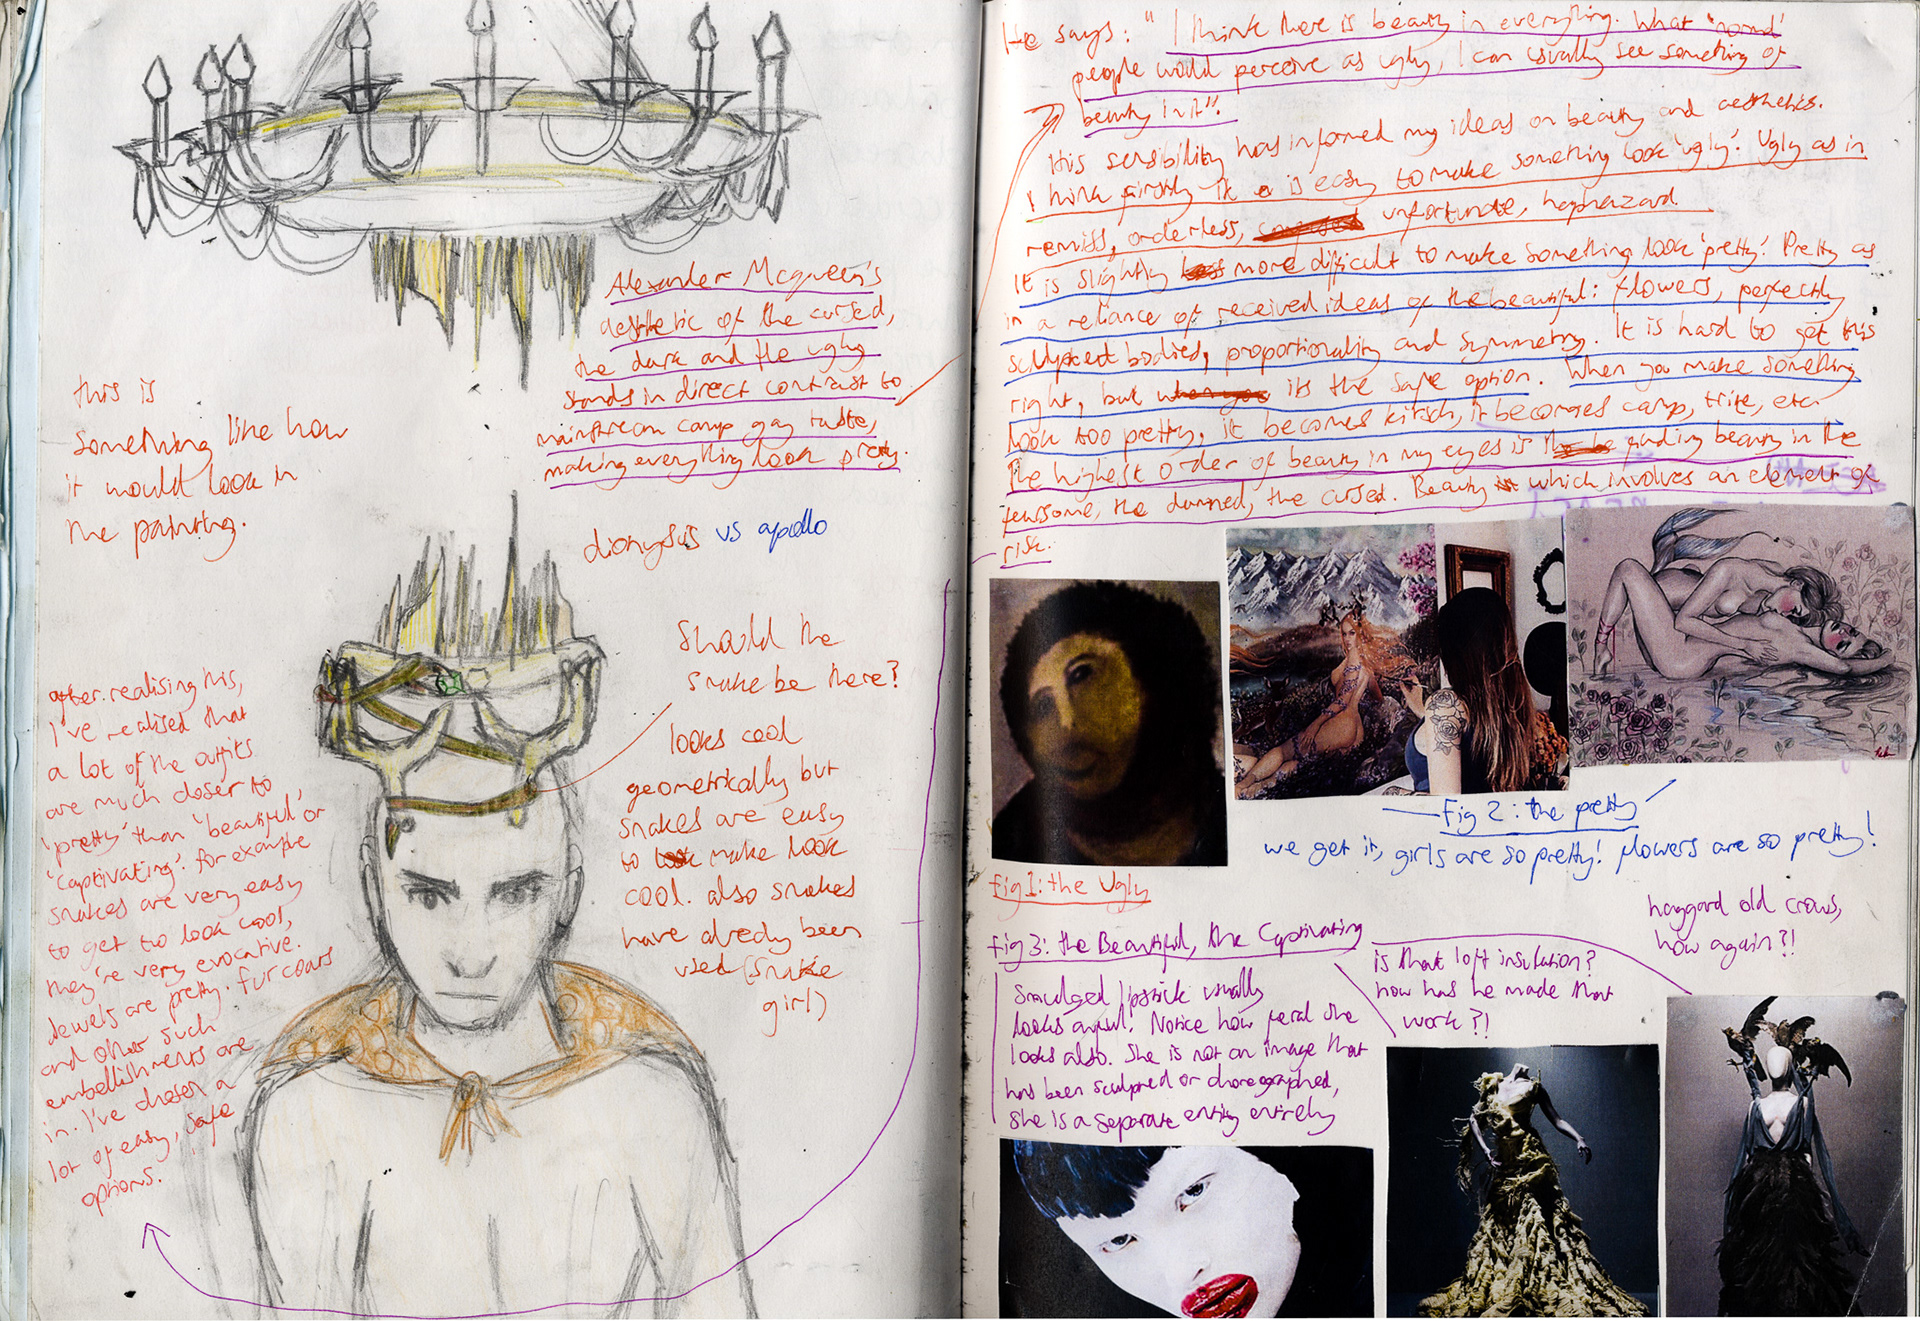 this is
something like how
it would look in
the painting.
Alexander Mcqueen's
aesthetic of the cursed,
the dark and the ugly
stands in direct contrast to
mainstream camp gay taste,
making everything look pretty.
dionysus vs apollo
Should the
snake be there?
looks cool
geometrically but
snakes are easy
to look make look
cool. also snakes
have already been
used (snake
girl)
after realising this,
I've realised that
a lot of the outfits
are much closer to
'pretty' than 'beautiful' or
'captivating'. for example
snakes are very easy
to get to look cool,
they're very evocative.
Jewels are pretty. fur coats
and other such
embellishments are
in. I've chosen a
lot of easy, safe
options.
He says: "I think there is beauty in everything. What 'normal'
people would perceive as ugly, I can usually see something of
beauty in it".
His sensibility has informed my ideas on beauty and aesthetics.
I think firstly it is easy to make something look 'ugly'. Ugly as in
remiss, orderless, unfortunate, haphazard
It is slightly less more difficult to make something look 'pretty'. Pretty as
in a reliance of received ideas of the beautiful: flowers, perfectly
sculpted bodies, proportionality and symmetry. It is hard to get this
right, but when you its the safe option. When you make something
look too pretty, it becomes kitsch, it becomes camp, trite, etc.
The highest order of beauty in my eyes is finding beauty in the
fearsome, the damned, the cursed. Beauty which involves an element of
risk.
fig 1: the Ugly
Fig 2: the pretty
we get it, girls are so pretty! flowers are so pretty!
fig 3: the Beautiful, the Captivating
Smudged lipstick usually
looks awful! Notice how feral she
looks also. She is not an image that
has been sculpted or choreographed,
she is a separate entity entirely
is that loft insulation?
how has he made that
work?!
haggard old crows,
how again?!